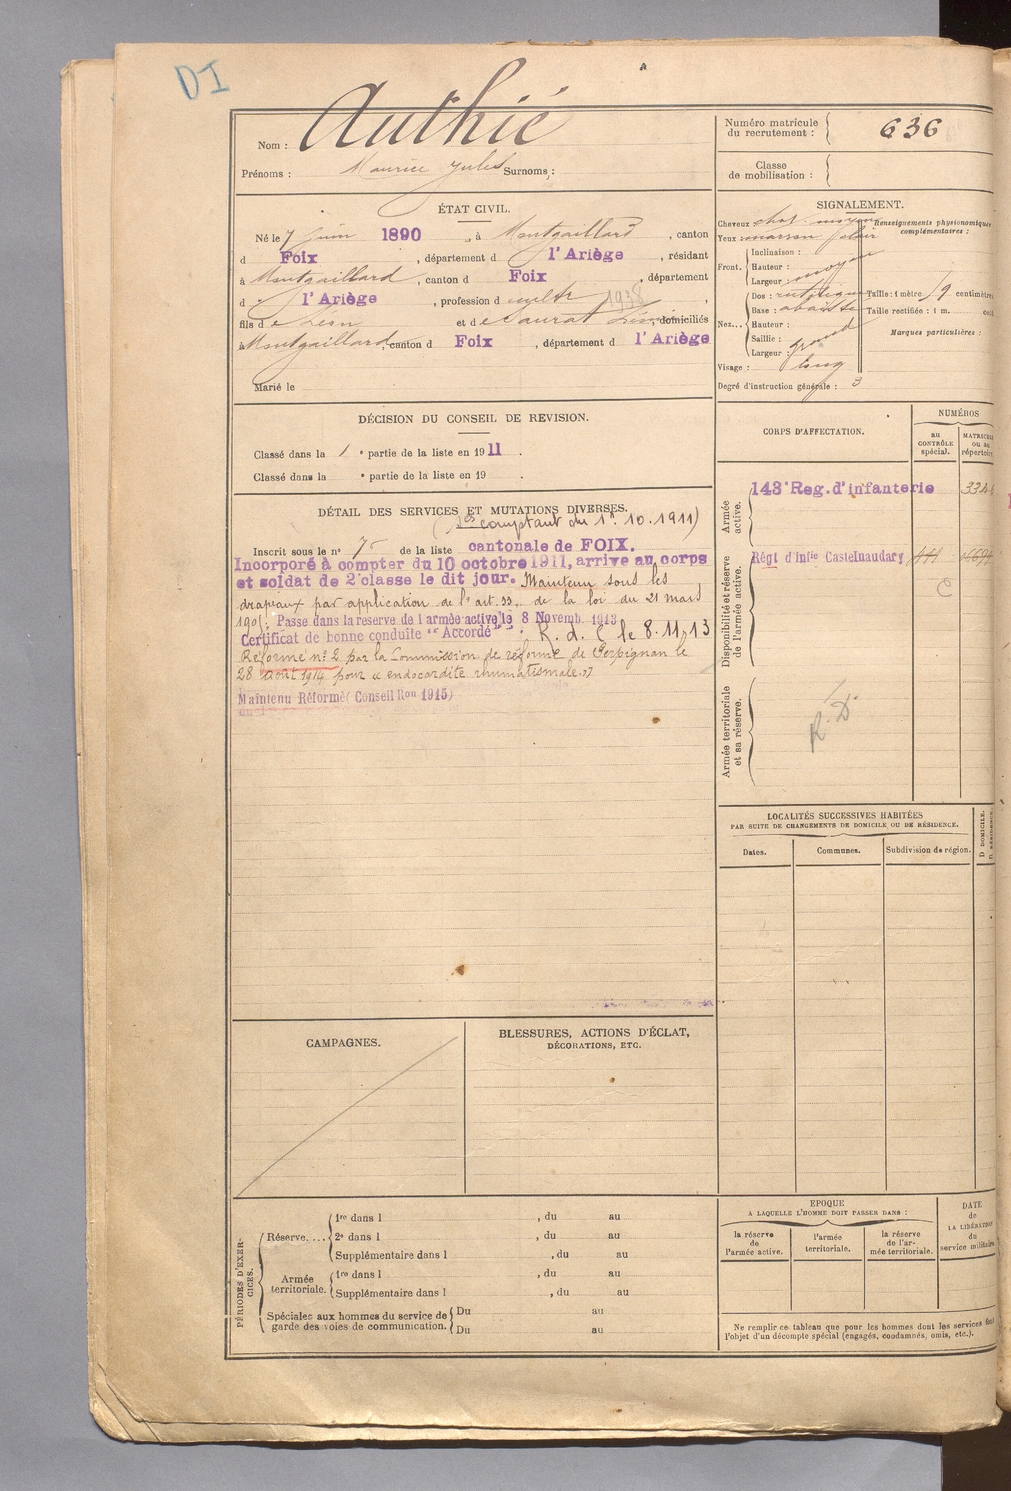 DI
Nom : Authié
Prénoms : Maurice Jules Surnoms :
Numéro matricule du recrutement : 636
Classe de mobilisation :
ÉTAT CIVIL.
Né le 7 juin 1890, à Montgaillard, canton
d Foix, département d l'Ariège, résidant
à Montgaillard, canton d Foix, département
d l'Ariège, profession d cultr 1938,
fils de Léon et de Saurat, domiciliés
à Montgaillard, canton d Foix, département d l'Ariège
Marié le
SIGNALEMENT.
Cheveux chat. moyen
Yeux marron clair
Renseignements physionomiques complémentaires :
Front. Inclinaison :
Hauteur : moyen
Largeur :
Nez... Dos : rectiligne
Base : abaissée
Hauteur :
Saillie : grand
Largeur :
Visage : long
Taille : 1 mètre centimètres
Taille rectifiée : 1 m. cent
Marques particulières :
Degré d'instruction générale : 3
DÉCISION DU CONSEIL DE REVISION.
Classé dans la 1e partie de la liste en 1911.
Classé dans la e partie de la liste en 19 .
DÉTAIL DES SERVICES ET MUTATIONS DIVERSES.
comptant du 1er. 10. 1911)
Inscrit sous le n° 75 de la liste cantonale de FOIX.
Incorporé à compter du 10 octobre 1911, arrive au corps
et soldat de 2e classe le dit jour. Maintenu sous les
drapeaux par application de l'art. 33 de la loi du 21 mars
1905. Passe dans la réserve de l'armée active le 8 Novemb. 1913
Certificat de bonne conduite "Accordé" : R. d. C le 8.11.13
Réformé n° 2 par la Commission de réforme de Perpignan le
28 août 1914 pour « endocardite rhumatismale »
Maintenu Réformé (Conseil Ron 1915)
CORPS D'AFFECTATION.
NUMÉROS
AU CONTRÔLE spécial.
MATRICULE ou au répertoire
Armée active.
143e Reg. d'infanterie
Disponibilité et réserve de l'armée active.
Régt d'Infie Castelnaudary
Armée territoriale et sa réserve.
R. D.
LOCALITÉS SUCCESSIVES HABITÉES
PAR SUITE DE CHANGEMENTS DE DOMICILE OU DE RÉSIDENCE.
Dates.
Communes.
Subdivision de région.
D DOMICILE.
R RÉSIDENCE.
CAMPAGNES.
BLESSURES, ACTIONS D'ÉCLAT,
DÉCORATIONS, ETC.
PÉRIODES D'EXERCICES.
Réserve....
1re dans l , du au
2e dans l , du au
Supplémentaire dans l , du au
Armée territoriale.
1re dans l , du au
Supplémentaire dans l , du au
Spéciales aux hommes du service de garde des voies de communication.
Du au
Du au
EPOQUE
A LAQUELLE L'HOMME DOIT PASSER DANS :
la réserve de l'armée active.
l'armée territoriale.
la réserve de l'armée territoriale.
DATE de LA LIBÉRATION du service militaire
Ne remplir ce tableau que pour les hommes dont les services font
l'objet d'un décompte spécial (engagés, condamnés, omis, etc.).